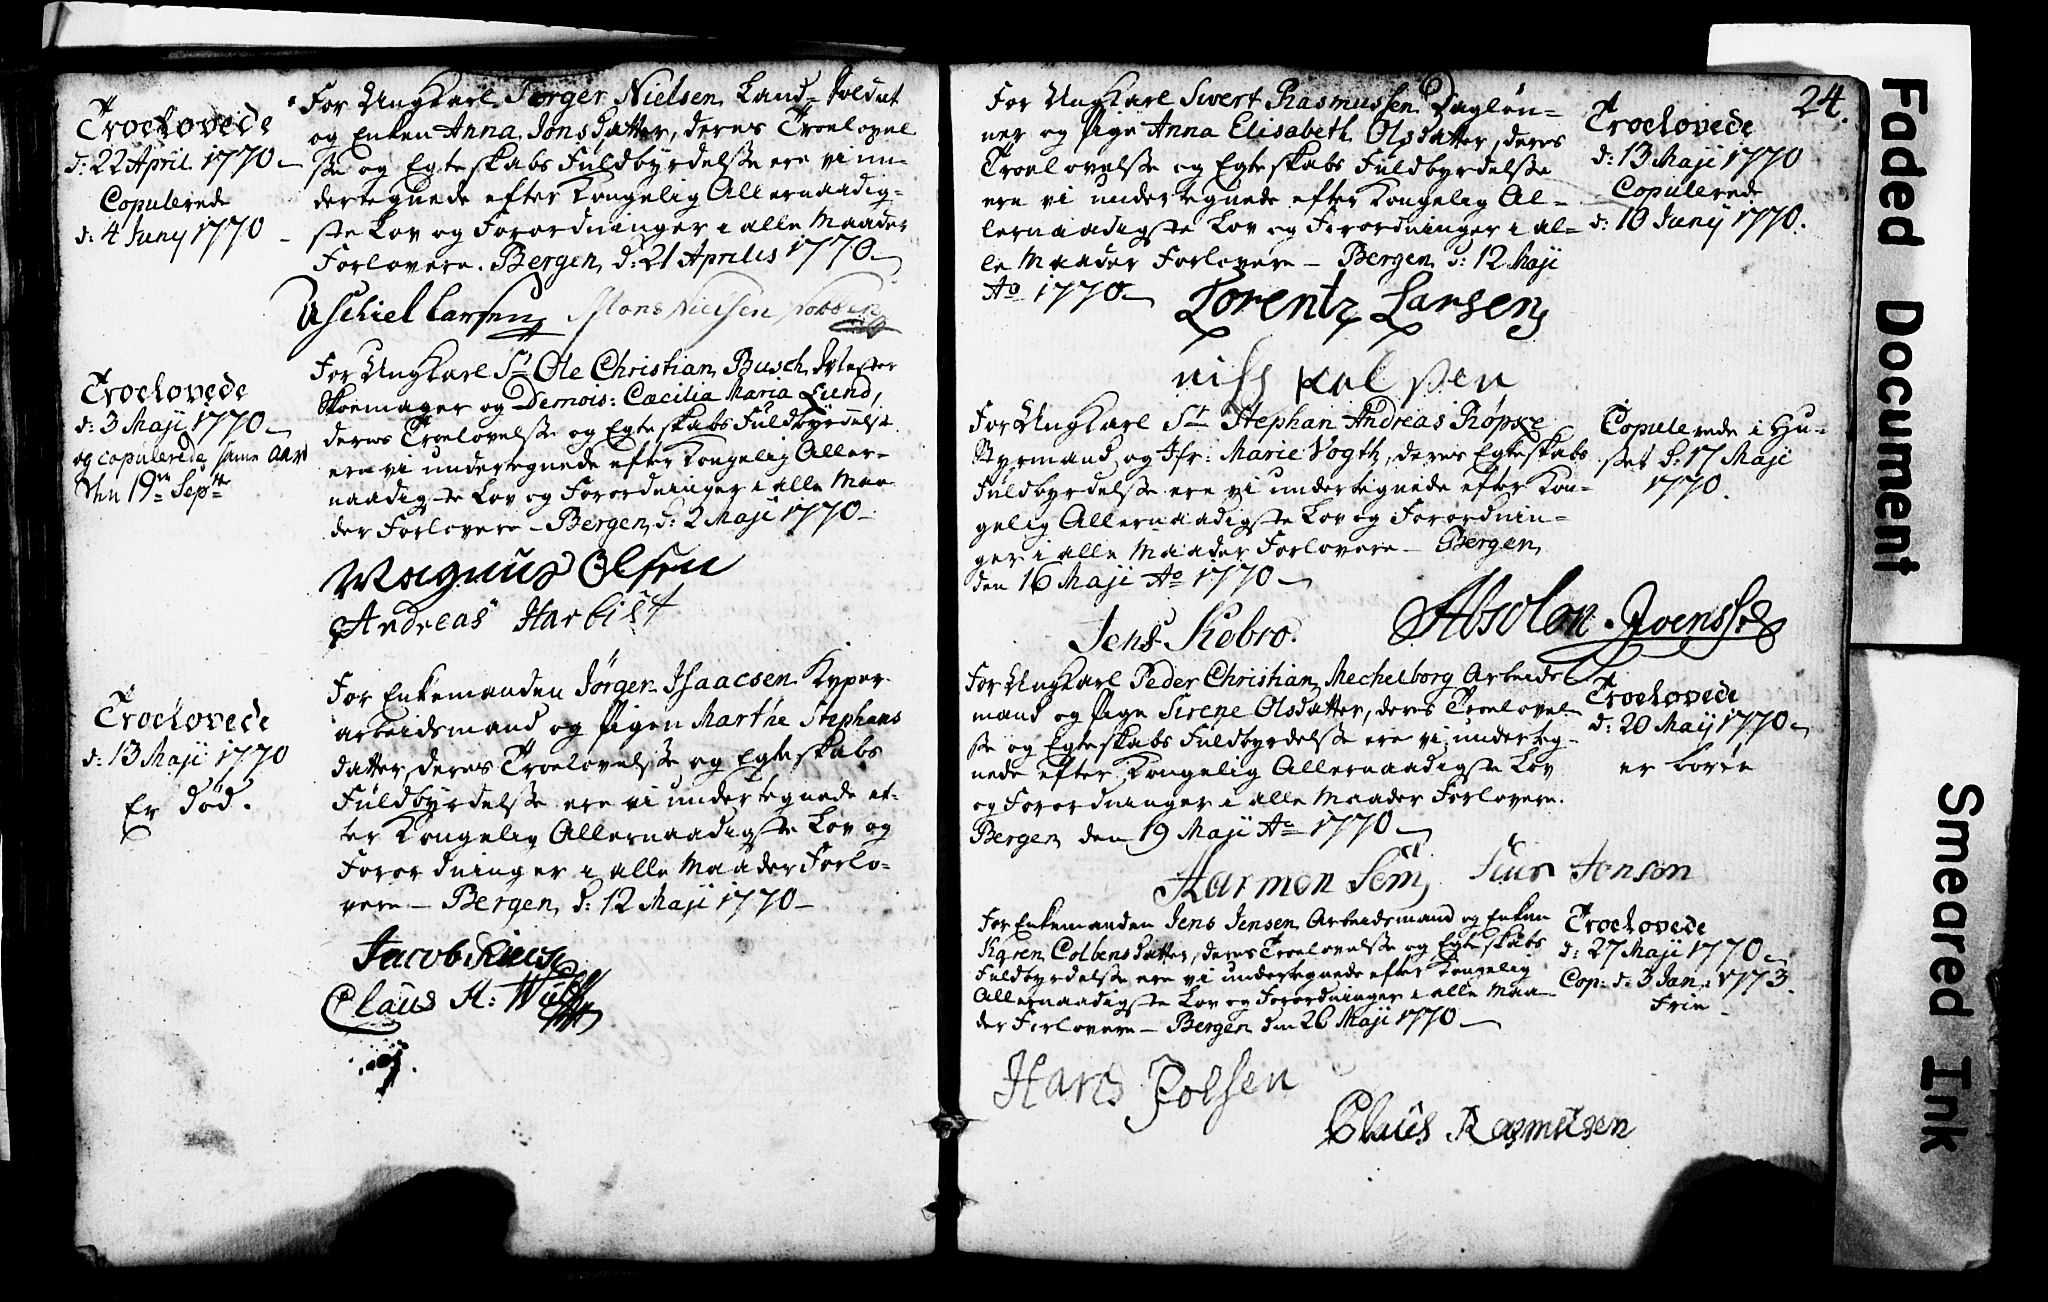 Troelovede
d: 22 April 1770
Copulerede
d: 4 Junij 1770
For Ungkarl Torger Nielsen Land-Soldat
og Enken Anna Jonsdatter, deres Troelovel
se og Egteskabs Fuldbyrdelse ere vi un-
dertegnede efter Kongelig Allernaadig-
ste Lov og Forordninger i alle Maader
Forlovere. Bergen d: 21 Aprilis 1770
Aschiel Larsen Mons Nielsen
Troelovede
d: 3 Maji 1770
og copulerede samme Aar
den 19de Sept
For Ungkarl Sr Ole Christian Busch Mester
Skoemager og Demois: Cæcilia Maria Lund,
deres Troelovelse og Egteskabs Fuldbyrdelse
ere vi undertegnede efter Kongelig Aller-
naadigste Lov og Forordninger i alle Maa
der Forlovere - Bergen d: 2 Maji 1770
Magnus Olsen
Andreas Harbist
Troelovede
d: 13 Maji 1770
Er død.
For Enkemanden Jørgen Isaacsen Kyper-
arbeidsmand og Pigen Marthe Stephens
datter, deres Troelovelse og Egteskabs
Fuldbyrdelse ere vi undertegnede ef-
ter Kongelig Allernaadigste Lov og
Forordninger i alle Maader Forlo-
vere - Bergen d: 12 Maji 1770
Jacob
Claus
24.
For Ungkarl Sivert Rasmussen Dagløn-
ner og Pige Anna Elisabeth Olsdatter, deres
Troelovelse og Egteskabs Fuldbyrdelse
ere vi undertegnede efter Kongelig Al-
lernaadigste Lov og Forordninger i al-
le Maader Forlovere - Bergen d: 12 Maji
Ao 1770
Lorentz Larsen
Troelovede
d: 13 Maji 1770
Copulerede
d: 10 Junij 1770.
For Ungkarl Sr Stephan Andreas Røpke
Styrmand og Jfr: Marie Vogth, deres Egteskabs
Fuldbyrdelse ere vi undertegnede efter Kon-
gelig Allernaadigste Lov og Forordnin-
ger i alle Maader Forlovere - Bergen
den 16 Maji Ao 1770
Jens Skobro. Absolon Ivenssen
Copulerede i Hu-
set d: 17 Maji
1770.
For Ungkarl Peder Christian Mechelborg Arbeids
mand og Pige Sirene Olsdatter, deres Troelovel
se og Egteskabs Fuldbyrdelse ere vi underteg-
nede efter Kongelig Allernaadigste Lov
og Forordninger i alle Maader Forlovere.
Bergen den 19 Maji Ao 1770
Harmen Jonsen
Troelovede
d: 20 Maij 1770
er
For Enkemanden Jens Jensen Arbeidsmand og Enken
Karen Colbensdatter, deres Troelovelse og Egteskabs
Fuldbyrdelse ere vi undertegnede efter Kongelig
Allernaadigste Lov og Forordninger i alle Maa-
der Forlovere - Bergen den 26 Maji 1770
Hans Polsen
Claus Rasmusen
Troelovede
d: 27 Maji 1770
Cop: d: 3 Jan: 1773.
Frie
Faded Document
Smeared Ink